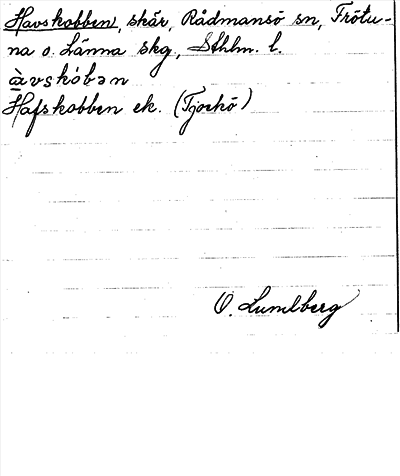 Havskobben, skär, Rådmansö sn, Frötu-
na o. Länna skg, Sthlm. l.
Hafskobben ek. (Tjockö)
O. Lundberg